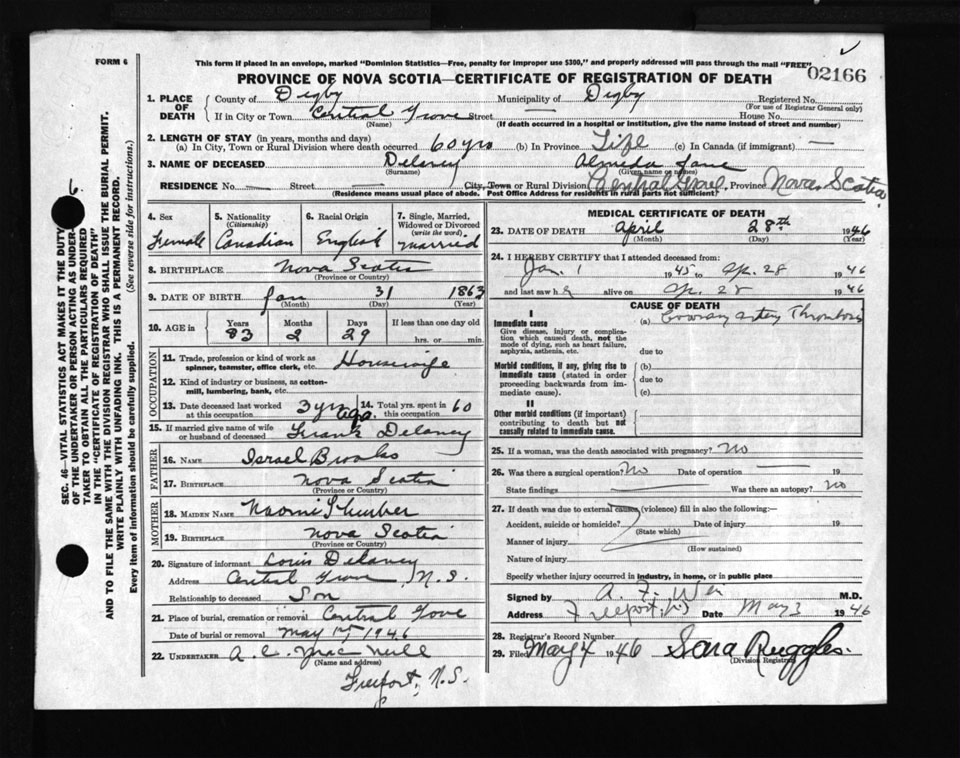 FORM 6
This form if placed in an envelope, marked "Dominion Statistics—Free, penalty for improper use $300," and properly addressed will pass through the mail "FREE"
PROVINCE OF NOVA SCOTIA—CERTIFICATE OF REGISTRATION OF DEATH
02166
1. PLACE OF DEATH
County of Digby Municipality of Digby Registered No.
(For use of Registrar General only)
If in City or Town Central Grove Street — House No.
(Name) (If death occurred in a hospital or institution, give the name instead of street and number)
2. LENGTH OF STAY (in years, months and days)
(a) In City, Town or Rural Division where death occurred 60 yrs (b) In Province Life (c) In Canada (if immigrant) —
3. NAME OF DECEASED Delaney Almeda Jane
(Surname) (Given name or names)
RESIDENCE No. — Street — City, Town or Rural Division Central Grove, Province Nova Scotia
(Residence means usual place of abode. Post Office Address for residents in rural parts not sufficient)
4. Sex Female
5. Nationality (Citizenship) Canadian
6. Racial Origin English
7. Single, Married, Widowed or Divorced (write the word) married
8. BIRTHPLACE Nova Scotia
(Province or Country)
9. DATE OF BIRTH Jan 31 1863
(Month) (Day) (Year)
10. AGE in Years 83 Months 2 Days 29 If less than one day old hrs. or min.
OCCUPATION
11. Trade, profession or kind of work as spinner, teamster, office clerk, etc. Housewife
12. Kind of industry or business, as cotton-mill, lumbering, bank, etc.
13. Date deceased last worked at this occupation 3 yrs ago.
14. Total yrs. spent in this occupation 60
15. If married give name of wife or husband of deceased Frank Delaney
FATHER
16. Name Israel Brooks
17. Birthplace Nova Scotia
(Province or Country)
MOTHER
18. Maiden Name Naomi Thurber
19. Birthplace Nova Scotia
(Province or Country)
20. Signature of informant Louis Delaney
Address Central Grove, N.S.
Relationship to deceased Son
21. Place of burial, cremation or removal Central Gove
Date of burial or removal May 1st 1946
22. UNDERTAKER A. C. MacNeill
(Name and address)
Freeport, N.S.
MEDICAL CERTIFICATE OF DEATH
23. DATE OF DEATH April 28th 1946
(Month) (Day) (Year)
24. I HEREBY CERTIFY that I attended deceased from:
Jan. 1 1945 to Ap. 28 1946
and last saw her alive on Ap. 28 1946
CAUSE OF DEATH
I
Immediate cause
Give disease, injury or complication which caused death, not the mode of dying, such as heart failure, asphyxia, asthenia, etc.
(a) Coronary artery Thrombosis
due to
Morbid conditions, if any, giving rise to immediate cause (stated in order proceeding backwards from immediate cause).
(b)
due to
(c)
II
Other morbid conditions (if important) contributing to death but not causally related to immediate cause.
25. If a woman, was the death associated with pregnancy? no
26. Was there a surgical operation? no Date of operation — 19
State findings — Was there an autopsy? no
27. If death was due to external causes (violence) fill in also the following:—
Accident, suicide or homicide? Date of injury 19
(State which)
Manner of injury
(How sustained)
Nature of injury
Specify whether injury occurred in industry, in home, or in public place
Signed by A. F. Weir M.D.
Address Freeport, N.S. Date May 3 1946
28. Registrar's Record Number
29. Filed May 4 1946 Sara Ruggles.
(Division Registrar)
6.
SEC. 46—VITAL STATISTICS ACT MAKES IT THE DUTY
OF THE UNDERTAKER OR PERSON ACTING AS UNDER-
TAKER TO OBTAIN ALL THE PARTICULARS REQUIRED
IN THE "CERTIFICATE OF REGISTRATION OF DEATH"
AND TO FILE THE SAME WITH THE DIVISION REGISTRAR WHO SHALL ISSUE THE BURIAL PERMIT.
WRITE PLAINLY WITH UNFADING INK. THIS IS A PERMANENT RECORD.
Every item of information should be carefully supplied. (See reverse side for instructions.)